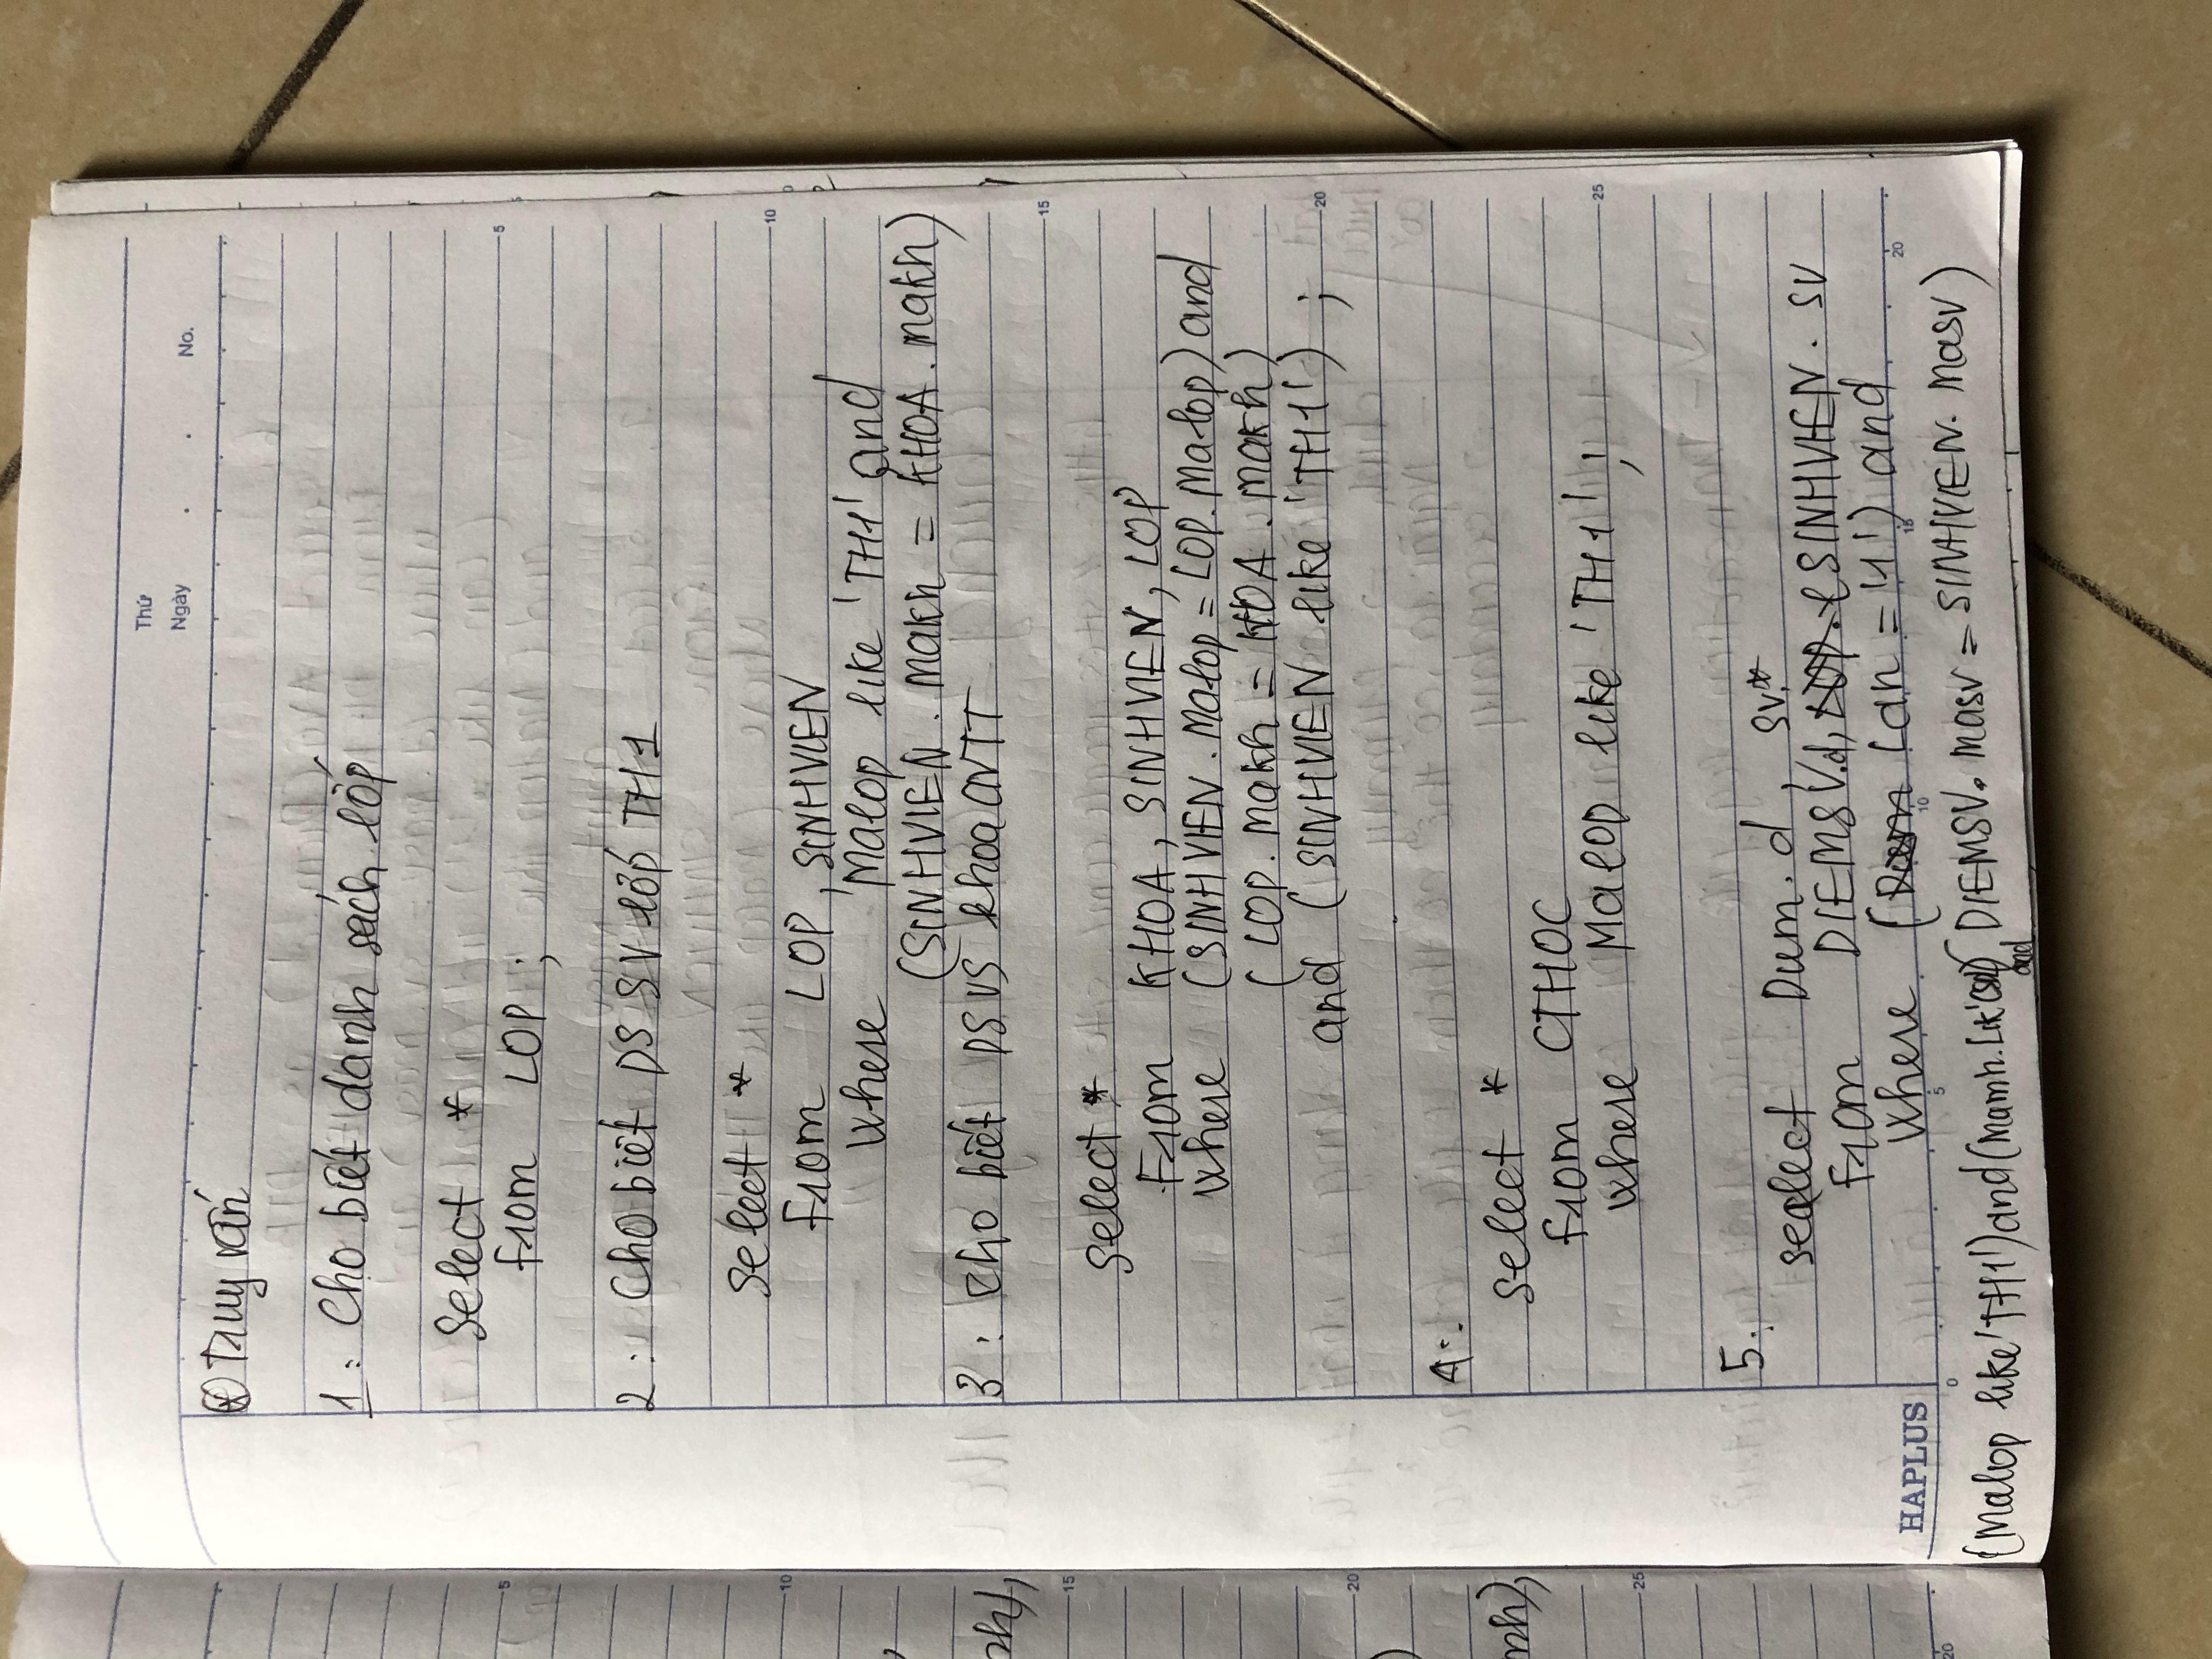 Thứ
Ngày . . No.
⊛ Truy vấn
1. Cho biết danh sách lớp
Select *
from LOP ;
2: Cho biết DS SV lớp TH1
Select *
from LOP, SINHVIEN
Where Malop like 'TH1' and
(SINHVIEN. Makh = KHOA. makh)
3: Cho biết DS VS khoa CNTT
Select *
From KHOA, SINHVIEN, LOP
Where (SINHVIEN. Malop = LOP. Malop) and
(LOP. makh = HOA. makh)
and (SINHVIEN like 'TH1') ;
4:
Select *
from CTHOC
Where Malop like 'TH1' ;
5.
select Dum. d, sv*
From DIEMSV.d, SINHVIEN. SV
Where ( Lan = '1') and
HAPLUS
(Malop like 'TH1') and (Mamh. Lik DIEMSV. masv = SINHVIEN. masv)
and